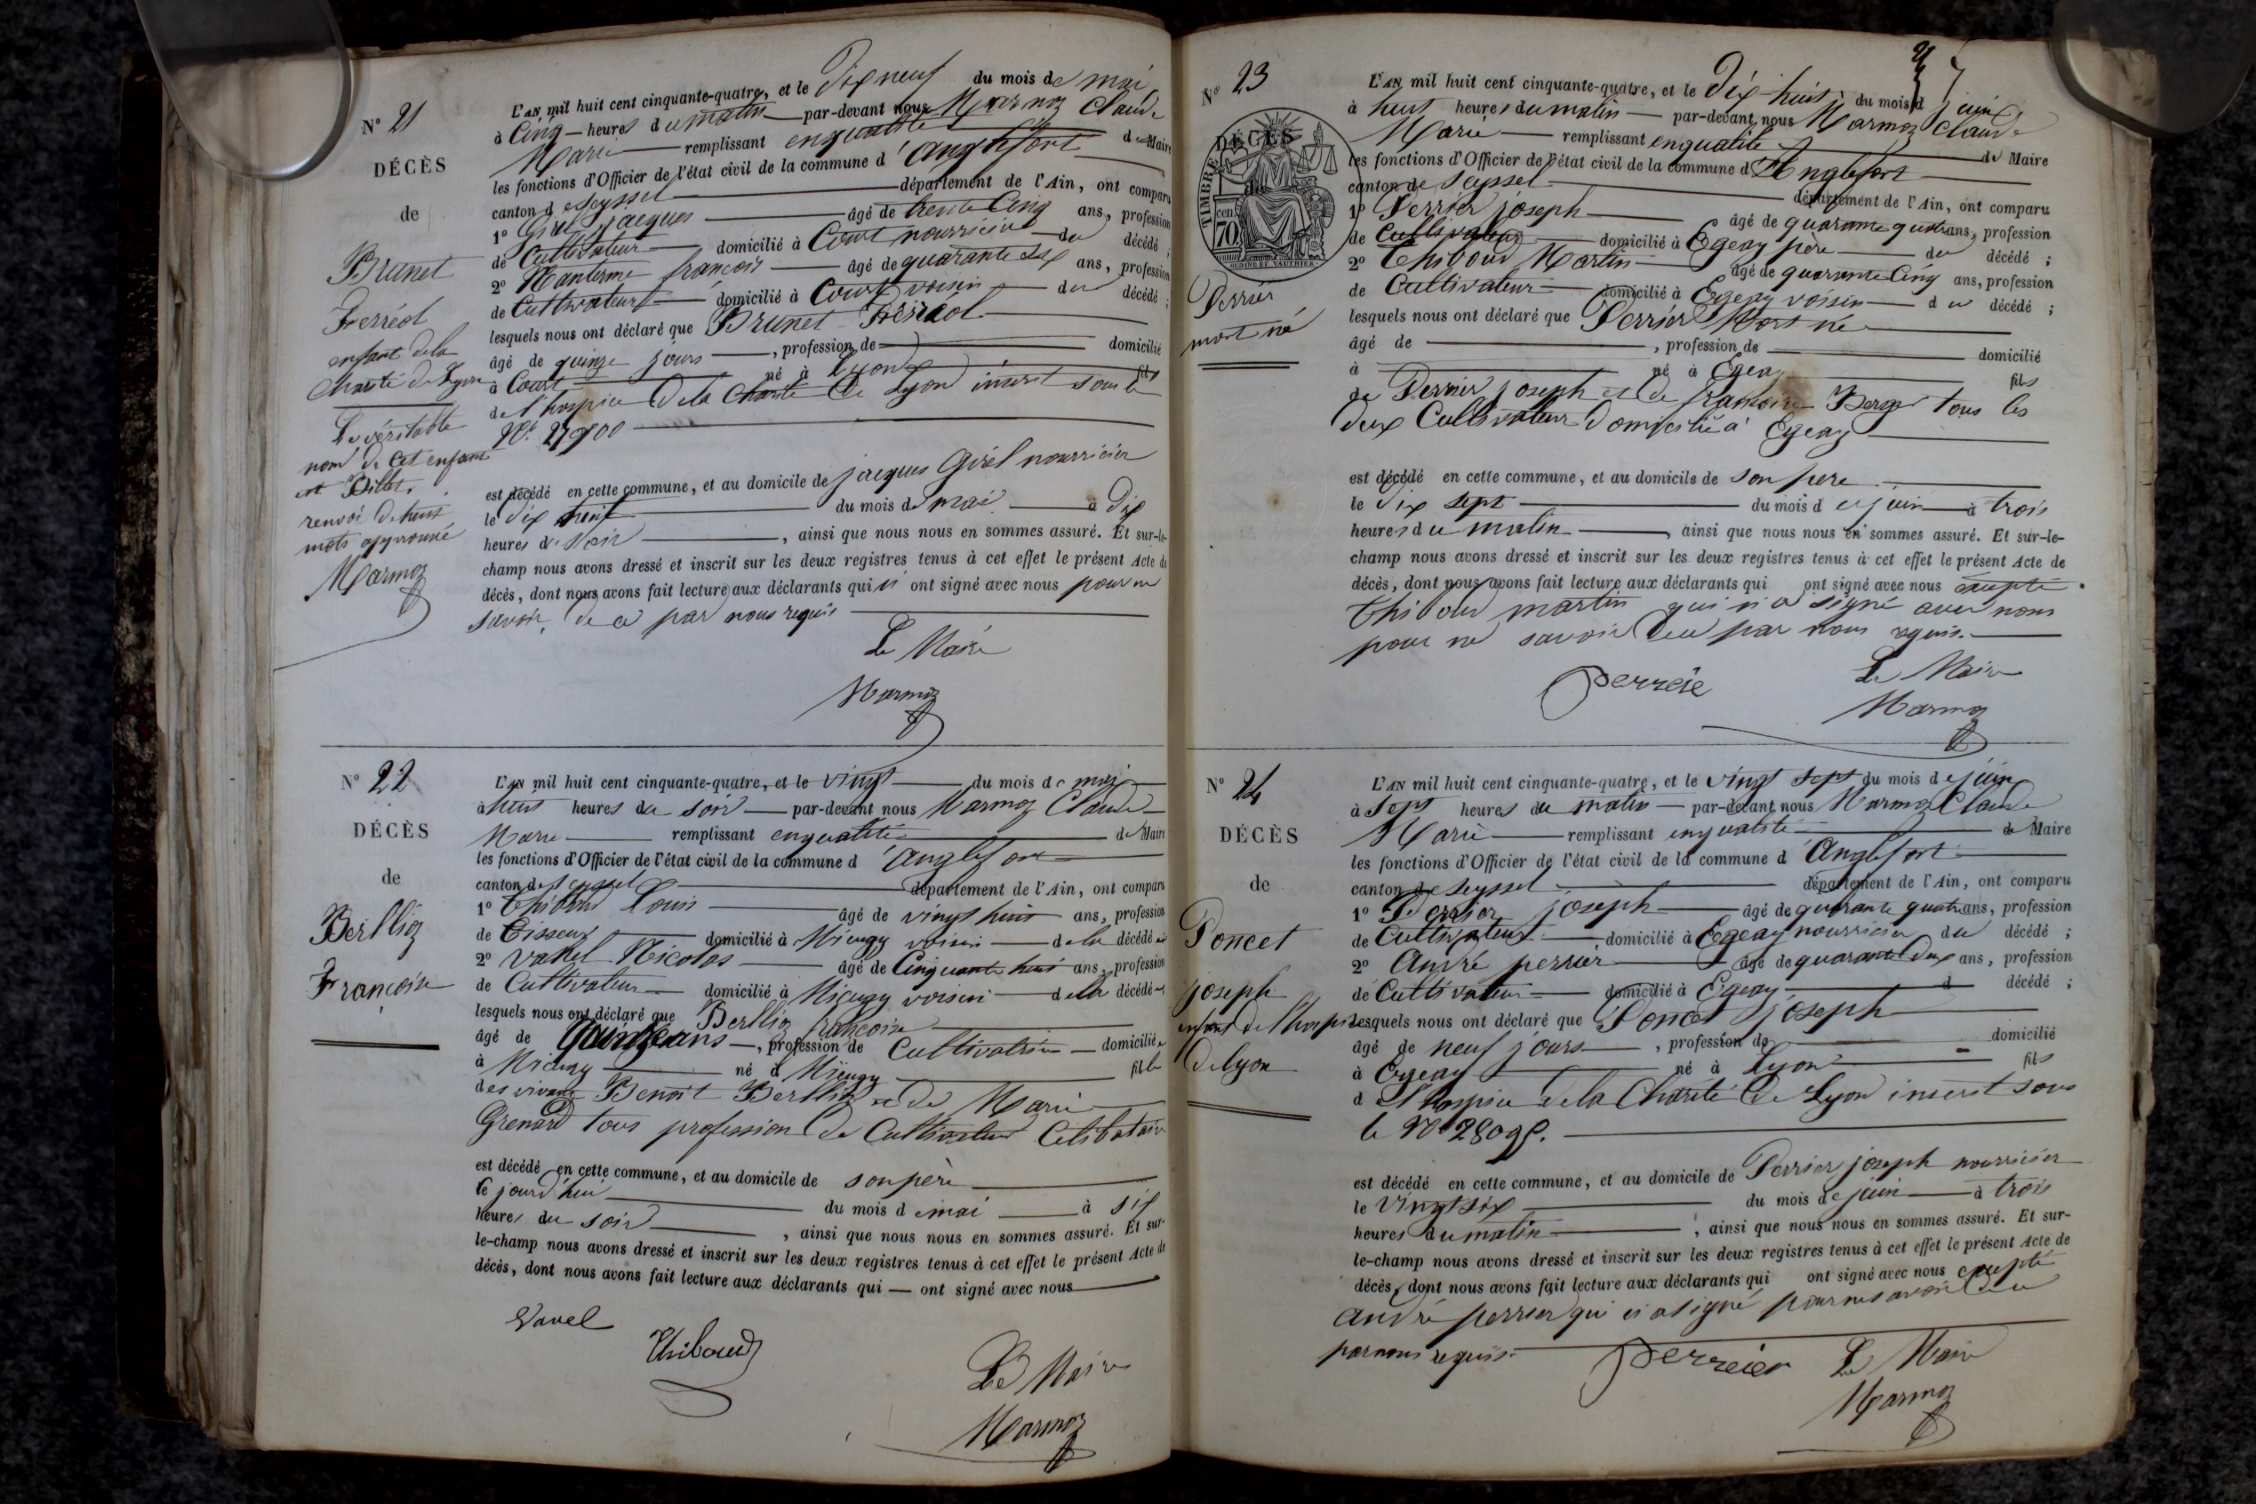 N° 21
DÉCÈS
de
Brunet
Ferréol
enfant de la
charité de Lyon
Le véritable
nom de cet enfant
est
renvoi de huit
mots approuvé
Marmoz
L'AN mil huit cent cinquante-quatre, et le Dix neuf du mois de mai
à Cinq heures du matin par-devant nous Marmoz Claude
Marie remplissant en qualité de Maire
les fonctions d'Officier de l'état civil de la commune d'Anglefort
canton de Seyssel département de l'Ain, ont comparu
1° Girel jacques âgé de trente Cinq ans, profession
de Cultivateur domicilié à Court nourricier du décédé ;
2° françois âgé de quarante six ans, profession
de Cultivateur domicilié à Court voisin du décédé ;
lesquels nous ont déclaré que Brunet Ferréol
âgé de quinze jours , profession de domicilié
à Court né à Lyon fils
de l'hospice de la Charité de Lyon inscrit sous le
N°
est décédé en cette commune, et au domicile de jacques Girel nourricier
le Dix neuf du mois de mai à Dix
heures du soir , ainsi que nous nous en sommes assuré. Et sur-le-
champ nous avons dressé et inscrit sur les deux registres tenus à cet effet le présent Acte de
décès, dont nous avons fait lecture aux déclarants qui n'ont signé avec nous pour ne
savoir de ce par nous requis
Le Maire
Marmoz
N° 22
DÉCÈS
de
Berllioz
Françoise
L'AN mil huit cent cinquante-quatre, et le vingt du mois de mai
à huit heures du soir par-devant nous Marmoz Claude
Marie remplissant en qualité de Maire
les fonctions d'Officier de l'état civil de la commune d'Anglefort
canton de Seyssel département de l'Ain, ont comparu
1° Thiboud Louis âgé de vingt huit ans, profession
de Tisseur domicilié à Mieugy voisin de la décédé
2° Vanel Nicolas âgé de Cinquante huit ans, profession
de Cultivateur domicilié à Mieugy voisin de la décédé
lesquels nous ont déclaré que Berllioz françoise
âgé de quinze ans , profession de Cultivatrice domicilié
à Mieugy né à Mieugy fille
des vivants Benoit Berllioz et de Marie
Grenard tous profession de Cultivateur Célibataire
est décédé en cette commune, et au domicile de son père
le jourd'hui du mois de mai à six
heures du soir , ainsi que nous nous en sommes assuré. Et sur-
le-champ nous avons dressé et inscrit sur les deux registres tenus à cet effet le présent Acte de
décès, dont nous avons fait lecture aux déclarants qui ont signé avec nous
Vanel
Thiboud
Le Maire
Marmoz
N° 23
DÉCÈS
TIMBRE
70 cen
Perrier
mort né
L'AN mil huit cent cinquante-quatre, et le Dix huit du mois de juin
à huit heures du matin par-devant nous Marmoz Claude
Marie remplissant en qualité de Maire
les fonctions d'Officier de l'état civil de la commune d'Anglefort
canton de Seyssel département de l'Ain, ont comparu
1° Perrier joseph âgé de quarante quatre ans, profession
de Cultivateur domicilié à Egeay père du décédé ;
2° Thiboud Martin âgé de quarante Cinq ans, profession
de Cultivateur domicilié à Egeay voisin du décédé ;
lesquels nous ont déclaré que Perrier Mort né
âgé de , profession de domicilié
à né à Egeay fils
de Perrier joseph et de françoise Berger tous les
deux Cultivateur Domicilié à Egeay
est décédé en cette commune, et au domicile de son père
le Dix sept du mois de juin à trois
heures du matin , ainsi que nous nous en sommes assuré. Et sur-le-
champ nous avons dressé et inscrit sur les deux registres tenus à cet effet le présent Acte de
décès, dont nous avons fait lecture aux déclarants qui ont signé avec nous excepté
Thiboud martin qui n'a signé avec nous
pour ne savoir de ce par nous requis.
Perreie
Le Maire
Marmoz
N° 24
DÉCÈS
de
Poncet
joseph
enfant de l'hospice
de Lyon
L'AN mil huit cent cinquante-quatre, et le vingt sept du mois de juin
à sept heures du matin par-devant nous Marmoz Claude
Marie remplissant en qualité de Maire
les fonctions d'Officier de l'état civil de la commune d'Anglefort
canton de Seyssel département de l'Ain, ont comparu
1° Perrier joseph âgé de quarante quatre ans, profession
de Cultivateur domicilié à Egeay nourricier du décédé ;
2° André perrier âgé de quarante Deux ans, profession
de Cultivateur domicilié à Egeay d décédé ;
lesquels nous ont déclaré que Poncet joseph
âgé de neuf jours , profession de domicilié
à Egeay né à Lyon fils
de l'hospice de la Charité de Lyon inscrit sous
le N° 28098.
est décédé en cette commune, et au domicile de Perrier joseph nourricier
le vingt six du mois de juin à trois
heures du matin , ainsi que nous nous en sommes assuré. Et sur-
le-champ nous avons dressé et inscrit sur les deux registres tenus à cet effet le présent Acte de
décès, dont nous avons fait lecture aux déclarants qui ont signé avec nous excepté
andré perrier qui n'a signé pour ne savoir de ce
par nous requis.
Perreier
Le Maire
Marmoz